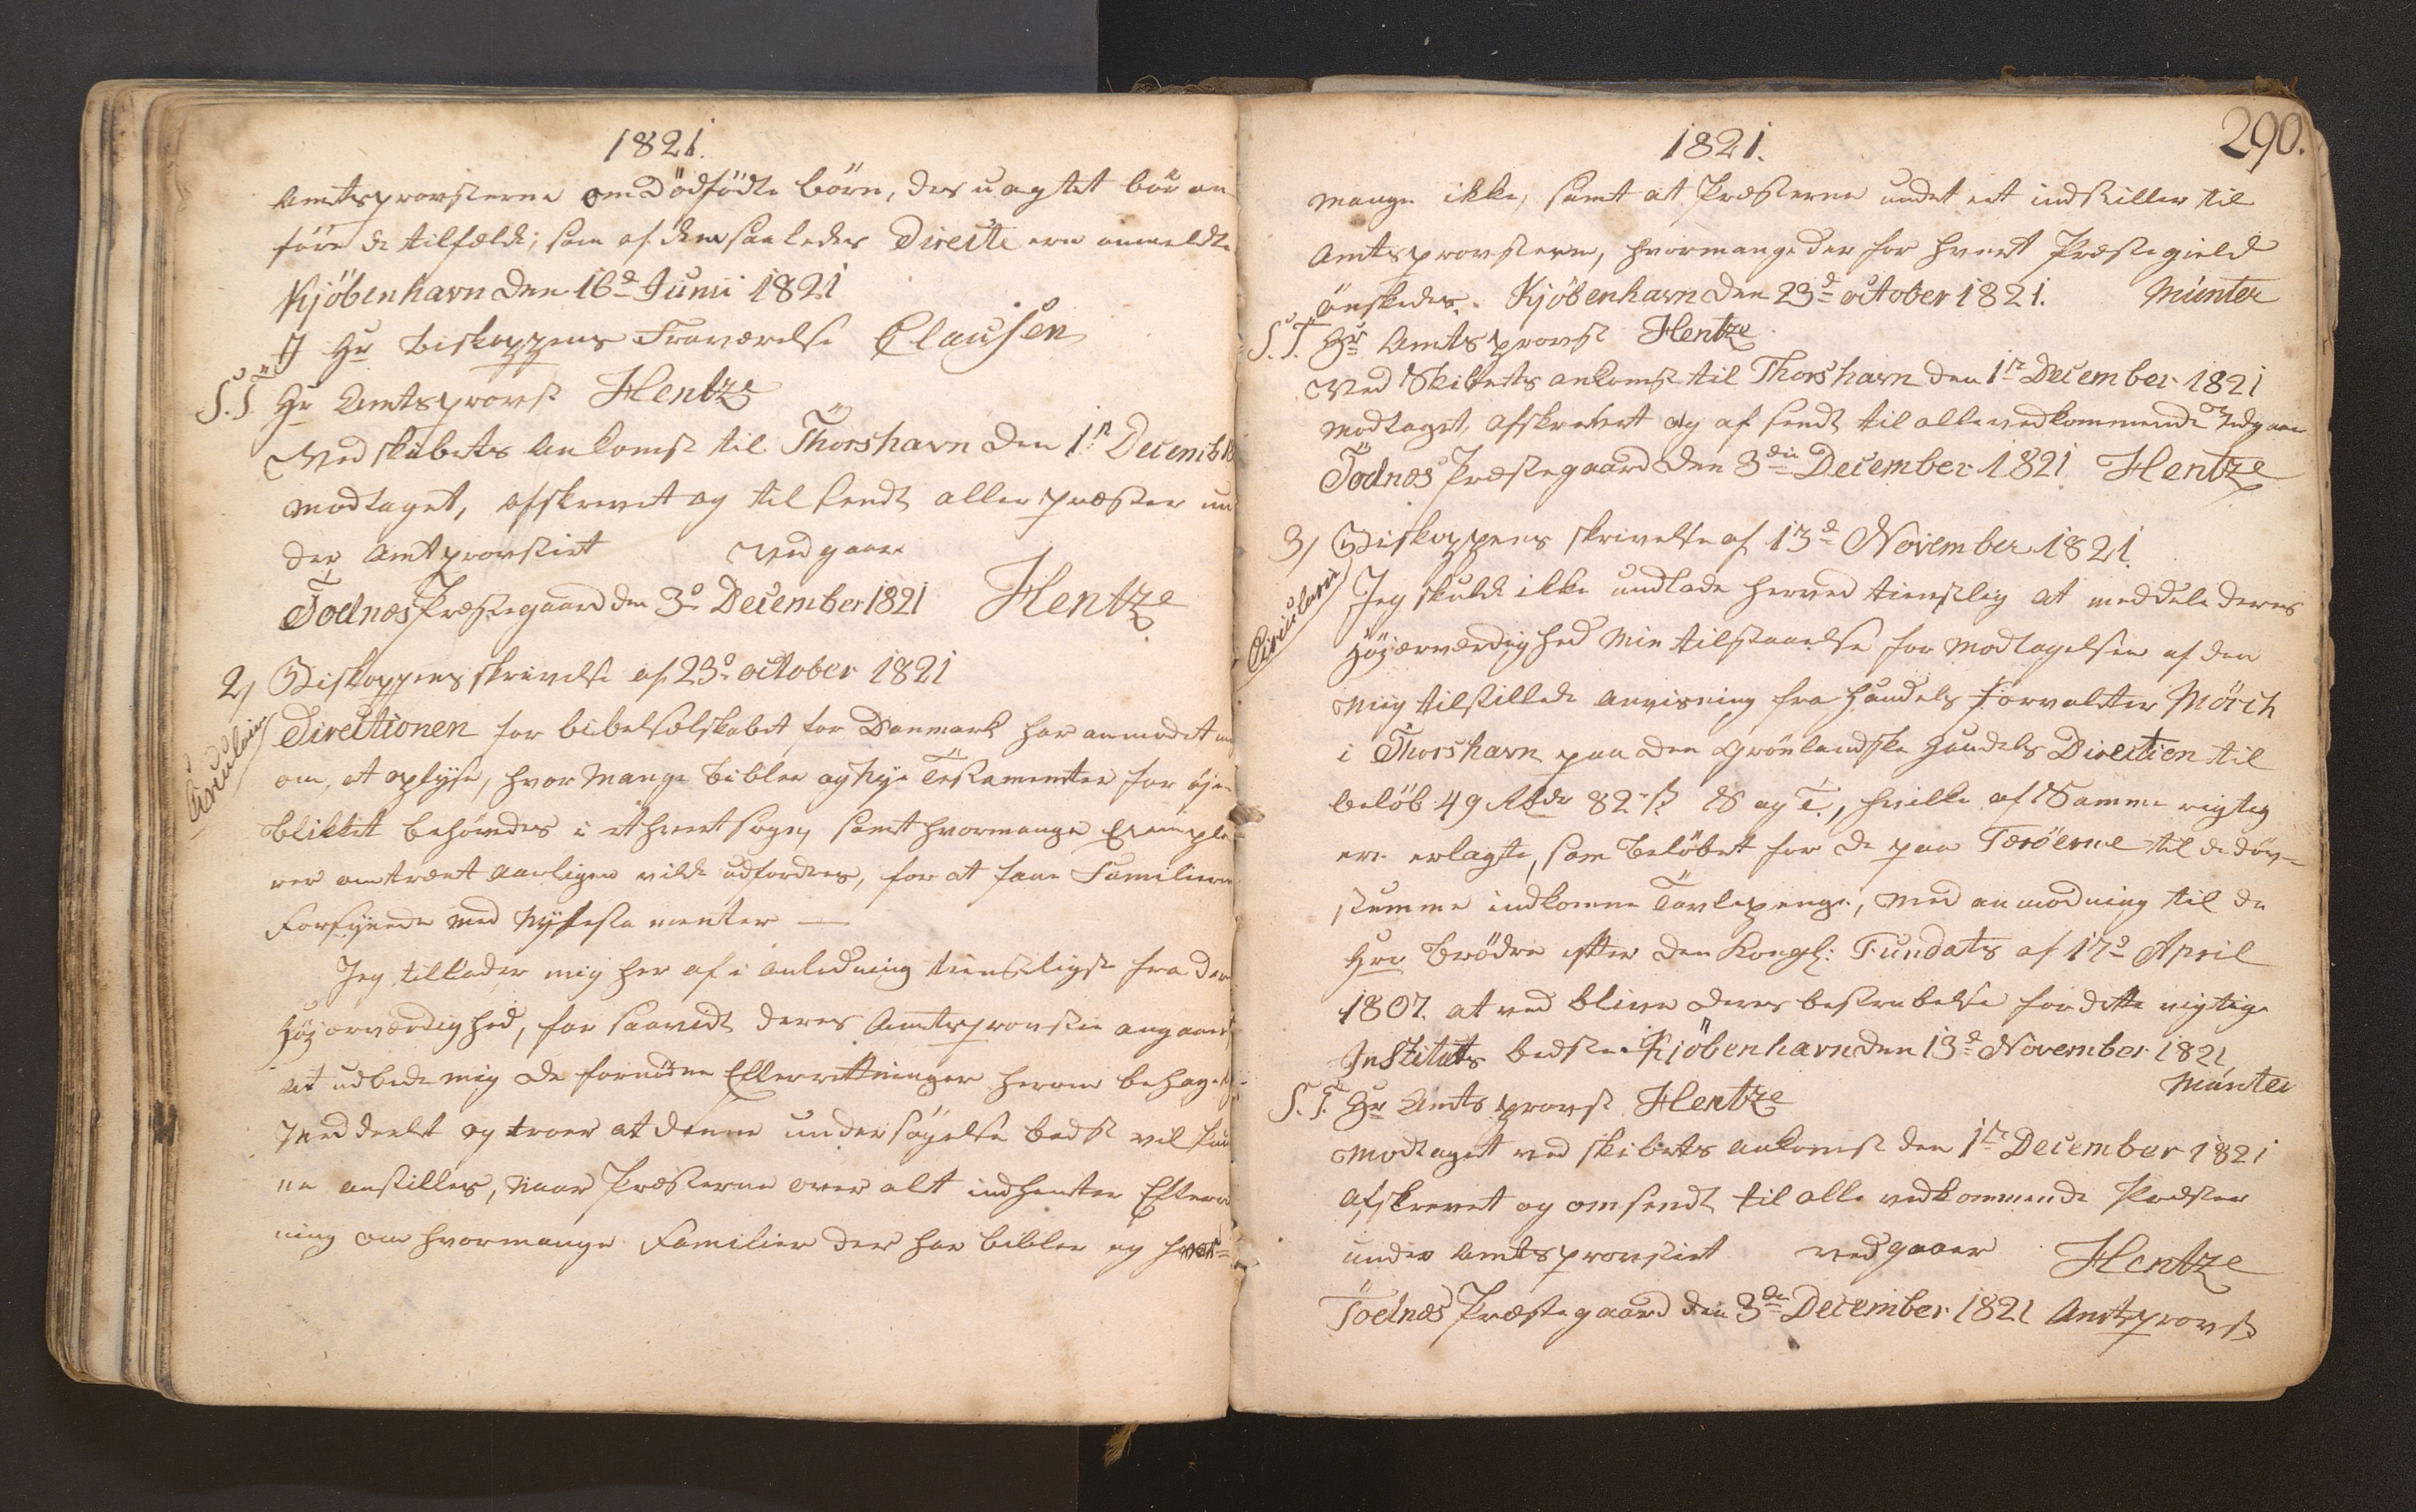 1821.
Amtsprovsterne om Dödfödte börn, des uagtet bör an
före de tilfælde; som af dem saaledes Directe ere anmeldte
Kjöbenhavn den 16d Junii 1821
I Hr Biskoppens Fraværelse Clausen
S. T. Hr Amtsprovst Hentze
Ved skibets Ankomst til Thorshavn den 1n Decembr
modtaget, afskrevet og tilsendt alle præster un
der Amtprovstiet Vedgaaer
Todnæs Præstegaard den 3d December 1821 Hentze
2) Biskoppens skrivelse af 23d october 1821
Circulaire
Directionen for bibelselskabet for Danmark har anmodet mig
om, at oplyse, hvor mange bibler og Nye Testamenter for öje-
blikket behöves i ethvert sogn, samt hvormange Exempla
rer omtrent aarligen vilde udfordres, for at faae Familierne
forsynede med Nye Testamenter —
Jeg tillader mig her af i anledning tienstligst fra Der
Höjærværdighed, for saavidt Deres Amtsprovstie angaaer
at udbede mig de fornödne Efterretninger herom behagel
meddeelt og troer at denne undersögelse bedst vil kun
ne anstilles, naar Præsterne over alt indhenter Efterret
ning om hvormange Familier der har bibler og hvor=
290.
1821.
mange ikke, samt at Præsterne under eet indstiller til
Amtsprovsten, hvormange der for hvert Præstegield
önskedes. Kjöbenhavn den 23d october 1821. Münter
S. T. Hr Amtsprovst Hentze
Ved Skibets ankomst til Thorshavn den 1n December 1821
modtaget, afskrevet og afsendt til alle vedkommende Vedgaaer
Todnæs Præstegaard den 3die December 1821 Hentze
3) Biskoppens skrivelse af 13d November 1821.
Circulaire
Jeg skulde ikke undlade herved tienstlig at meddele deres
Höjærværdighed min tilstaaelse for modtagelsen af den
mig tilstillede anvisning fra handels Forvalter Mörch
i Thorshavn paa den Grönlandske Handels Direction til
belöb 49 Rbdr 82 s. S og T., hvilke af Samme rigtig
ere erlagte, som belöbet for de paa Færöerne til de döv=
stumme indkomne Tavlepenge, med anmodning til de
Hrr Brödre efter den Kongl: Fundats af 17d April
1807. at ved blive deres bestræbelse for dette vigtige
Instituts bedste. Kjöbenhavn den 13d November 1821
Münter
S. T. Hr Amts provst Hentze
Modtaget ved skibets ankomst den 1n December 1821
afskrevet og omsendt til alle vedkommende Præster
under Amtsprovstiet vedgaaer Hentze
Todnæs Præstegaard den 3die December 1821 Amtsprovst